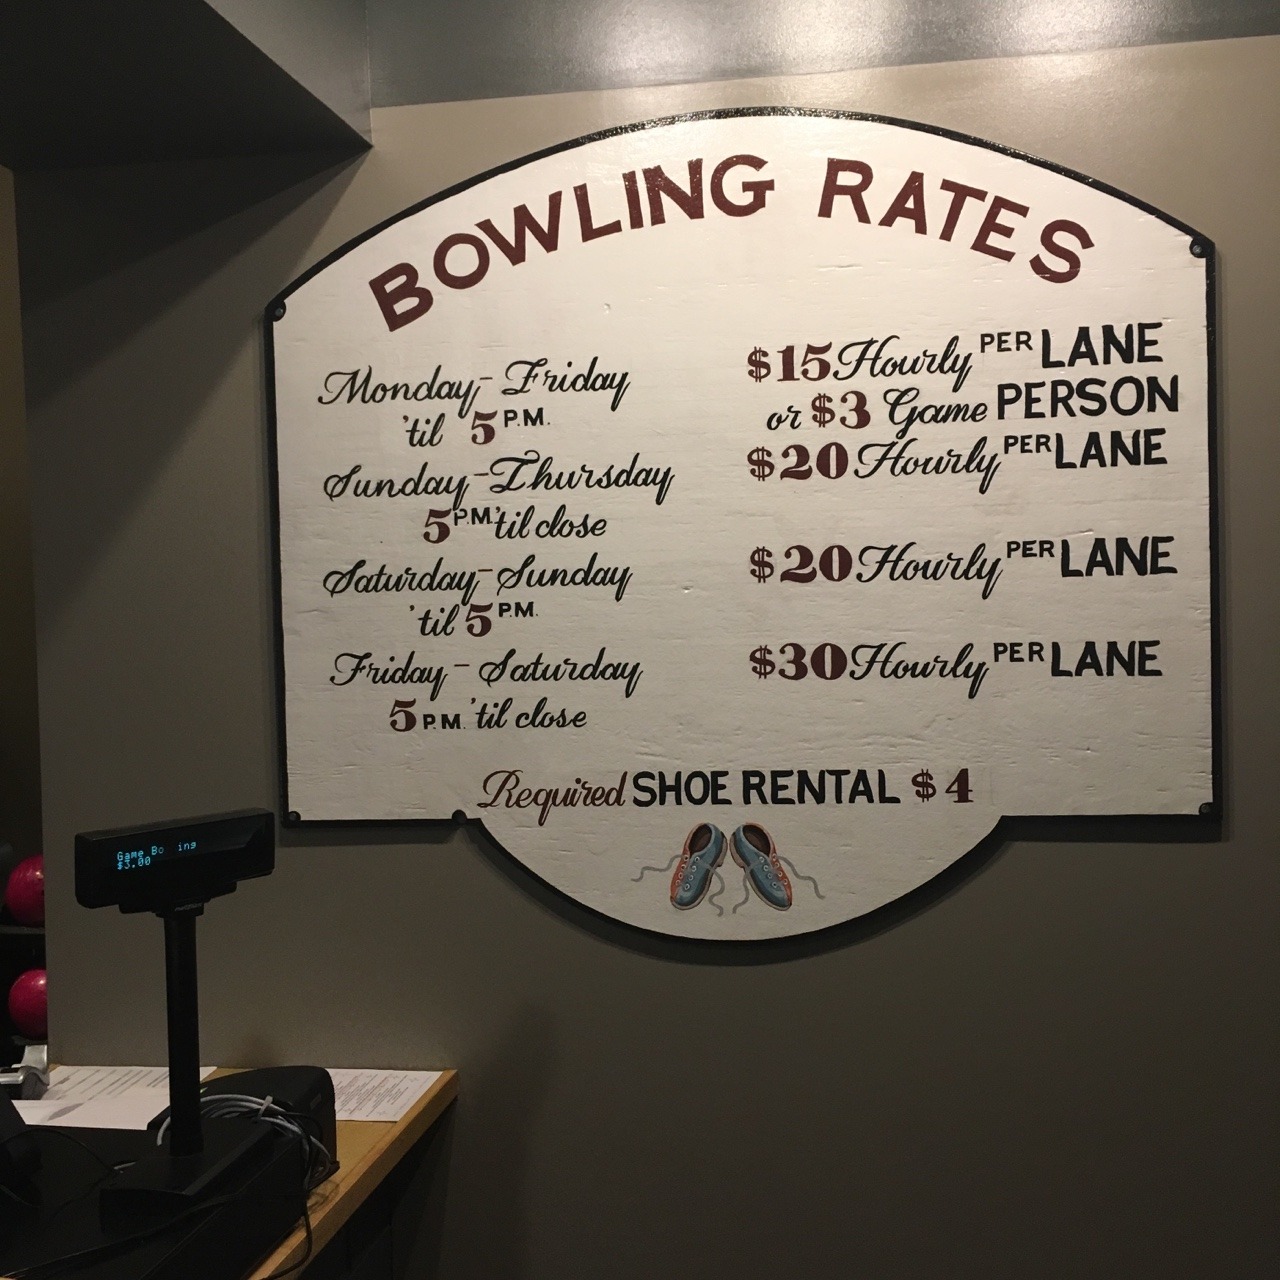 BOWLING RATES
Monday-Friday
'til 5 P.M.
$15 Hourly PER LANE
or $3 Game PERSON
Sunday-Thursday
5 P.M. 'til close
$20 Hourly PER LANE
Saturday-Sunday
'til 5 P.M.
$20 Hourly PER LANE
Friday-Saturday
5 P.M. 'til close
$30 Hourly PER LANE
Required SHOE RENTAL $4
Game Bo ing
$3.00